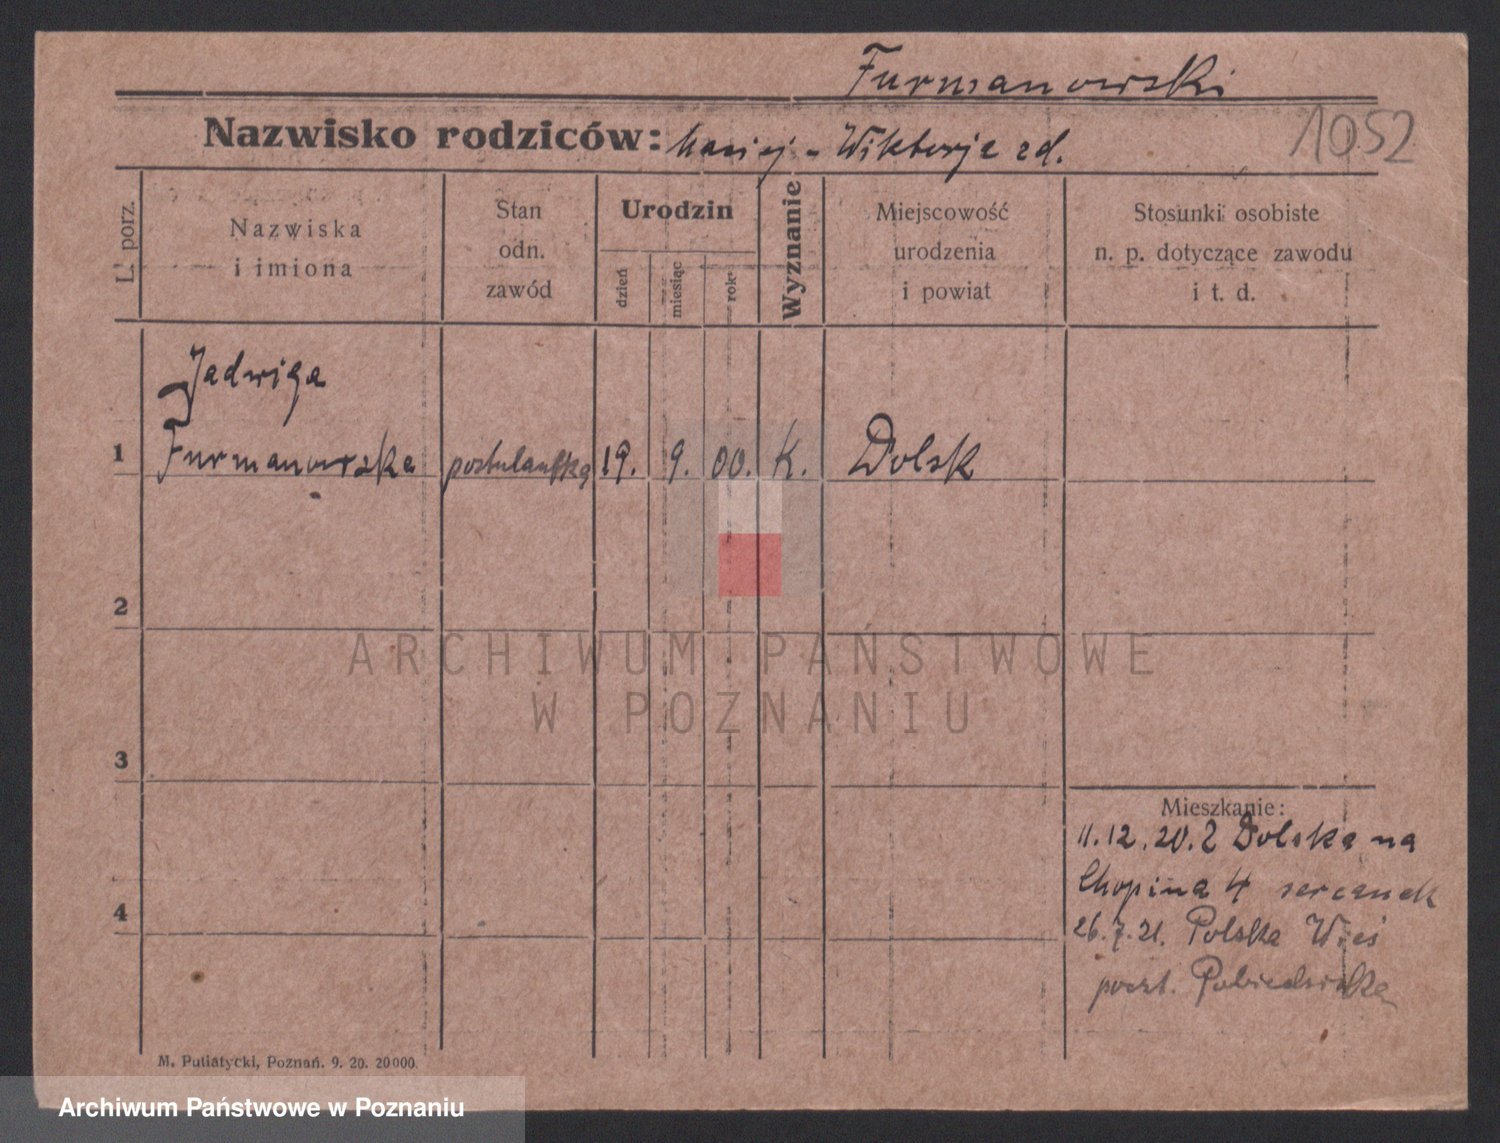 Furmanowski
Nazwisko rodziców: Maciej - Wiktorja zd.
1052
L. porz.
Nazwiska
i imiona
Stan
odn.
zawód
Urodzin
dzień
miesiąc
rok
Wyznanie
Miejscowość
urodzenia
i powiat
Stosunki osobiste
n. p. dotyczące zawodu
i t. d.
Jadwiga
1 Furmanowska postulantka 19. 9. 00. K. Dolsk
2
3
4
Mieszkanie:
11.12.20. z Dolska na
Chopina 4 sercanek
26.7.21. Polska Wieś
poczt. Pobiedziska
M. Putiatycki, Poznań. 9. 20. 20000.
ARCHIWUM PAŃSTWOWE
W POZNANIU
Archiwum Państwowe w Poznaniu